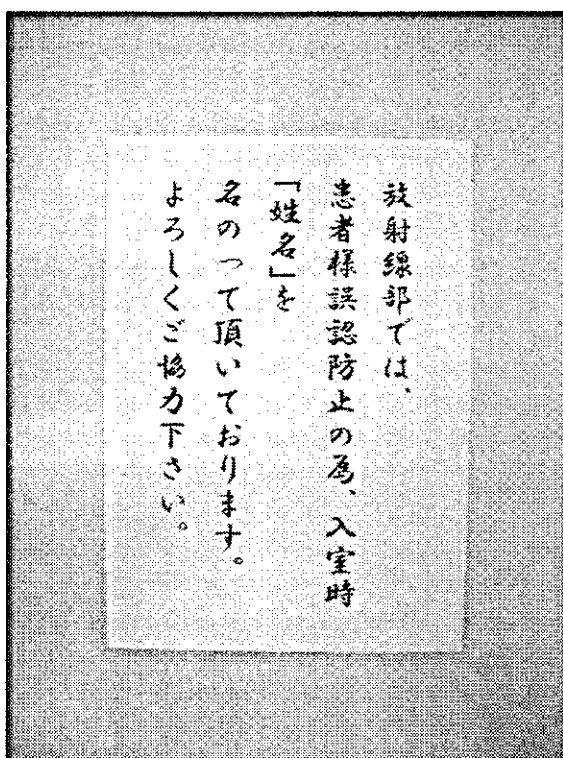 放射線部では、
患者様誤認防止の為、入室時
「姓名」を
名のって頂いております。
よろしくご協力下さい。